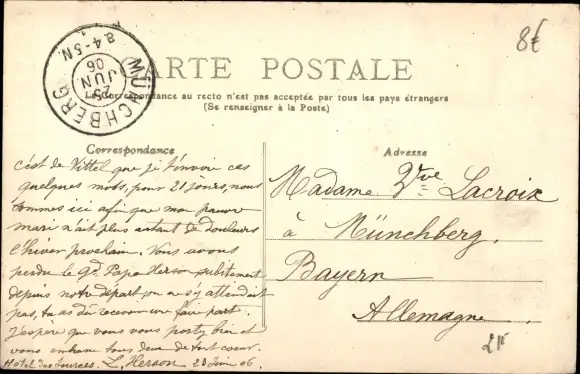 8€
MÜNCHBERG
25 JUN 06
8 4-5N.
CARTE POSTALE
La Correspondance au recto n'est pas acceptée par tous les pays étrangers
(Se renseigner à la Poste)
Correspondance
C'est de Vittel que je t'envoie ces
quelques mots, pour 21 jours, nous
sommes ici afin que mon pauvre
mari n'ait plus autant de douleurs
l'hiver prochain. Nous avons
perdu le Gd Papa Herson subitement
depuis notre départ, on ne s'y attendait
pas, tu as dû recevoir une faire part.
J'espère que vous vous portez bien et
vous embrasse tous deux de tout coeur.
Hôtel des Sources. L. Herson 23 Juin 06.
Adresse
Madame Vve Lacroix
à Münchberg,
Bayern
Allemagne